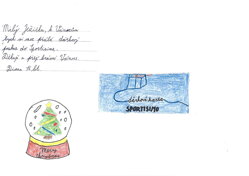 Milý Ježíšku, k Vánocům
bych si moc přála dárkový
poukaz do Sportisima.
Děkuji a přeji krásné Vánoce
dárková karta
SPORTISIMO
Merry
Christmas